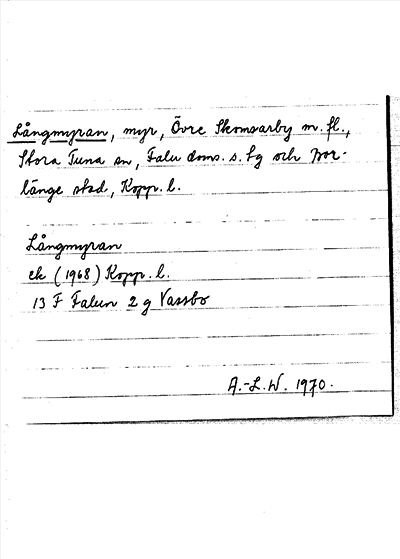 Långmyran, myr, Övre Skomsarby m.fl.,
Stora Tuna sn, Falu doms. s. tg och Bor-
länge stad, Kopp. l.
Långmyran
ek (1968) Kopp. l.
13 F Falun 2 g Vassbo
A.-L.W. 1970.